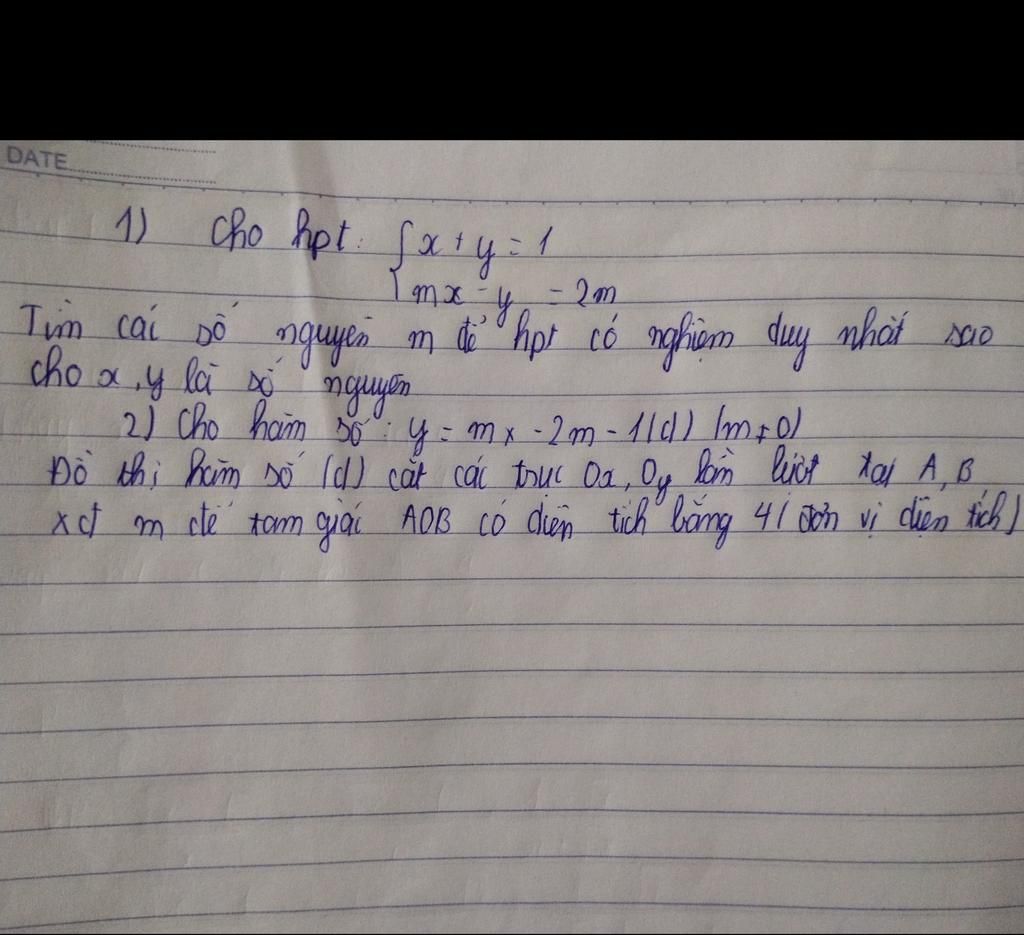 DATE
1) Cho hpt: { x + y = 1
mx - y = 2m
Tìm các số nguyên m để hpt có nghiệm duy nhất sao
cho x, y là số nguyên
2) Cho hàm số: y = mx - 2m - 1 (d) (m ≠ 0)
Đồ thị hàm số (d) cắt các trục Ox, Oy lần lượt tại A, B
xđ m để tam giác AOB có diện tích bằng 4 (đơn vị diện tích)